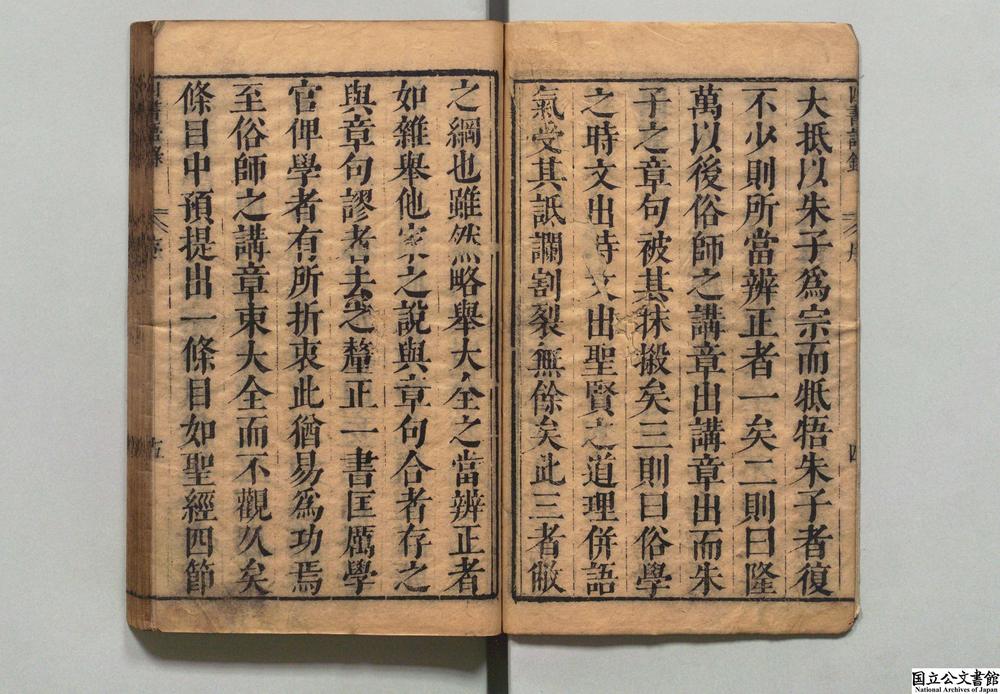 大抵以朱子爲宗而牴牾朱子者復
不少則所當辨正者一矣二則曰隆
萬以後俗師之講章出講章出而朱
子之章句被其抹搬矣三則曰俗學
之時文出時文出聖賢之道理併語
氣受其詆讕割裂無餘矣此三者敝
之綱也雖然略舉大全之當辨正者
如雜舉他家之說與章句合者存之
與章句謬者去之釐正一書匡厲學
官俾學者有所折衷此猶易爲功焉
至俗師之講章束大全而不觀久矣
條目中預提出一條目如聖經四節
序
四
序
国立公文書館
National Archives of Japan